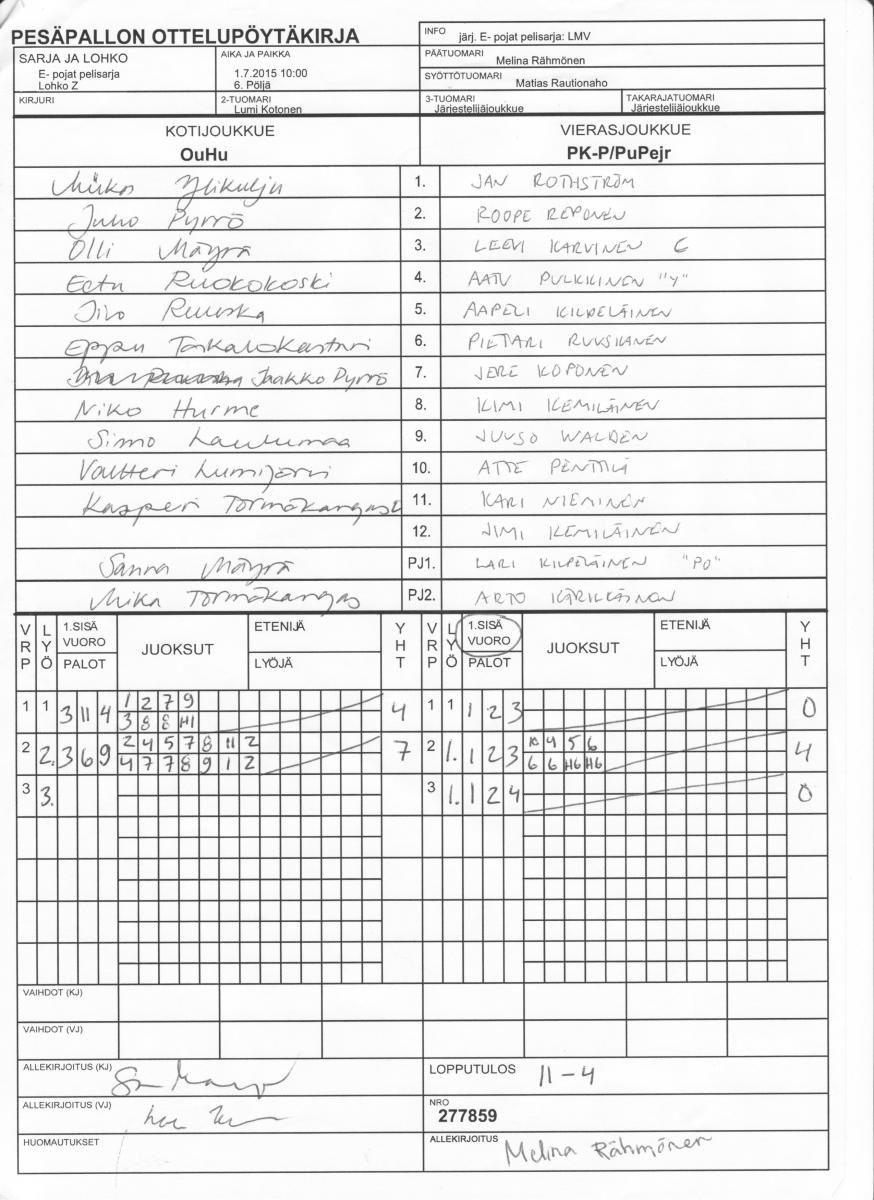 PESÄPALLON OTTELUPÖYTÄKIRJA
INFO järj. E- pojat pelisarja: LMV
SARJA JA LOHKO
E- pojat pelisarja
Lohko Z
AIKA JA PAIKKA
1.7.2015 10:00
6. Pöljä
PÄÄTUOMARI
Melina Rähmönen
SYÖTTÖTUOMARI
Matias Rautionaho
KIRJURI
2-TUOMARI
Lumi Kotonen
3-TUOMARI
Järjestelijäjoukkue
TAKARAJATUOMARI
Järjestelijäjoukkue
KOTIJOUKKUE
OuHu
VIERASJOUKKUE
PK-P/PuPejr
Miika Ylikulju 1. JAN ROTHSTRÖM
Juho Pyrrö 2. ROOPE REPONEN
Olli Mäyrä 3. LEEVI KARVINEN C
Eetu Ruokokoski 4. AATU PULKKINEN "Y"
Iivo Ruuska 5. AAPELI KILPELÄINEN
Eppu 6. PIETARI RUUSKANEN
Jaakko Pyrrö 7. JERE KOPONEN
Niko Hurme 8. KIMI KEMILÄINEN
Simo Laulumaa 9. JUUSO WALDEN
Valtteri Lumijärvi 10. ATTE PENTTILÄ
Kasperi Törmäkangas 11. KARI NIEMINEN
12. JIMI KEMILÄINEN
Sanna Mäyrä PJ1. LARI KILPELÄINEN "PO"
Mika Törmäkangas PJ2. ARTO KÄRKKÄINEN
VRP LYÖ 1.SISÄ VUORO PALOT JUOKSUT ETENIJÄ LYÖJÄ YHT VRP LYÖ 1.SISÄ VUORO PALOT JUOKSUT ETENIJÄ LYÖJÄ YHT
1 1 3 11 4 1 2 7 9 4 1 1 1 2 3 0
3 8 8 H1
2 2. 3 6 9 2 4 5 7 8 11 2 7 2 1. 1 2 3 4 5 6 4
4 7 7 8 9 1 2 6 6 H6 H6
3 3. 3 1. 1 2 4 0
VAIHDOT (KJ)
VAIHDOT (VJ)
ALLEKIRJOITUS (KJ)
LOPPUTULOS 11-4
ALLEKIRJOITUS (VJ)
NRO
277859
HUOMAUTUKSET
ALLEKIRJOITUS Melina Rähmönen